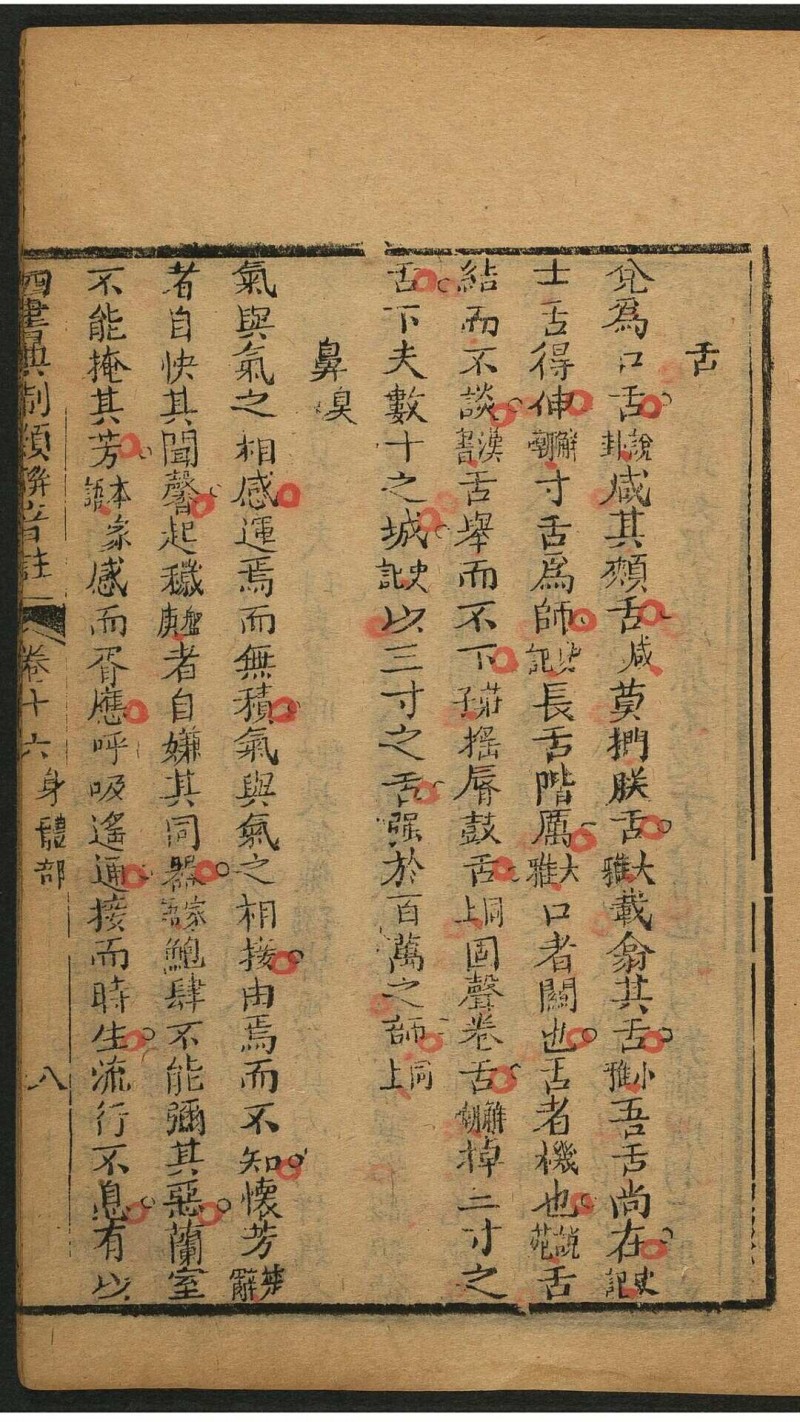 舌
兊為口舌說卦咸其頰舌咸莫捫朕舌大雅載翕其舌小雅吾舌尚在史記
士舌得伸解朝寸舌爲師史記長舌階厲大雅口者關也舌者機也說苑舌
結而不談漢書舌舉而不下莊子搖脣鼓舌同上固聲卷舌解朝掉三寸之
舌下夫數十之城史記以三寸之舌强於百萬之師同上
鼻臭
氣與氣之相感運焉而無積氣與氣之相接由焉而不知懷芳楚辭
者自快其聞馨起穢者自嫌其同器家語鮑肆不能彌其惡蘭室
不能掩其芳本語氣感而胥應呼吸遙通接而時生流行不息有以
四書典制類聯音註 卷十六 身體部 八